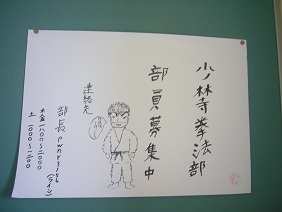 少林寺拳法部
部員募集中
連絡先
部長
(ライン)
木金 1800〜2000
土 1000〜1200